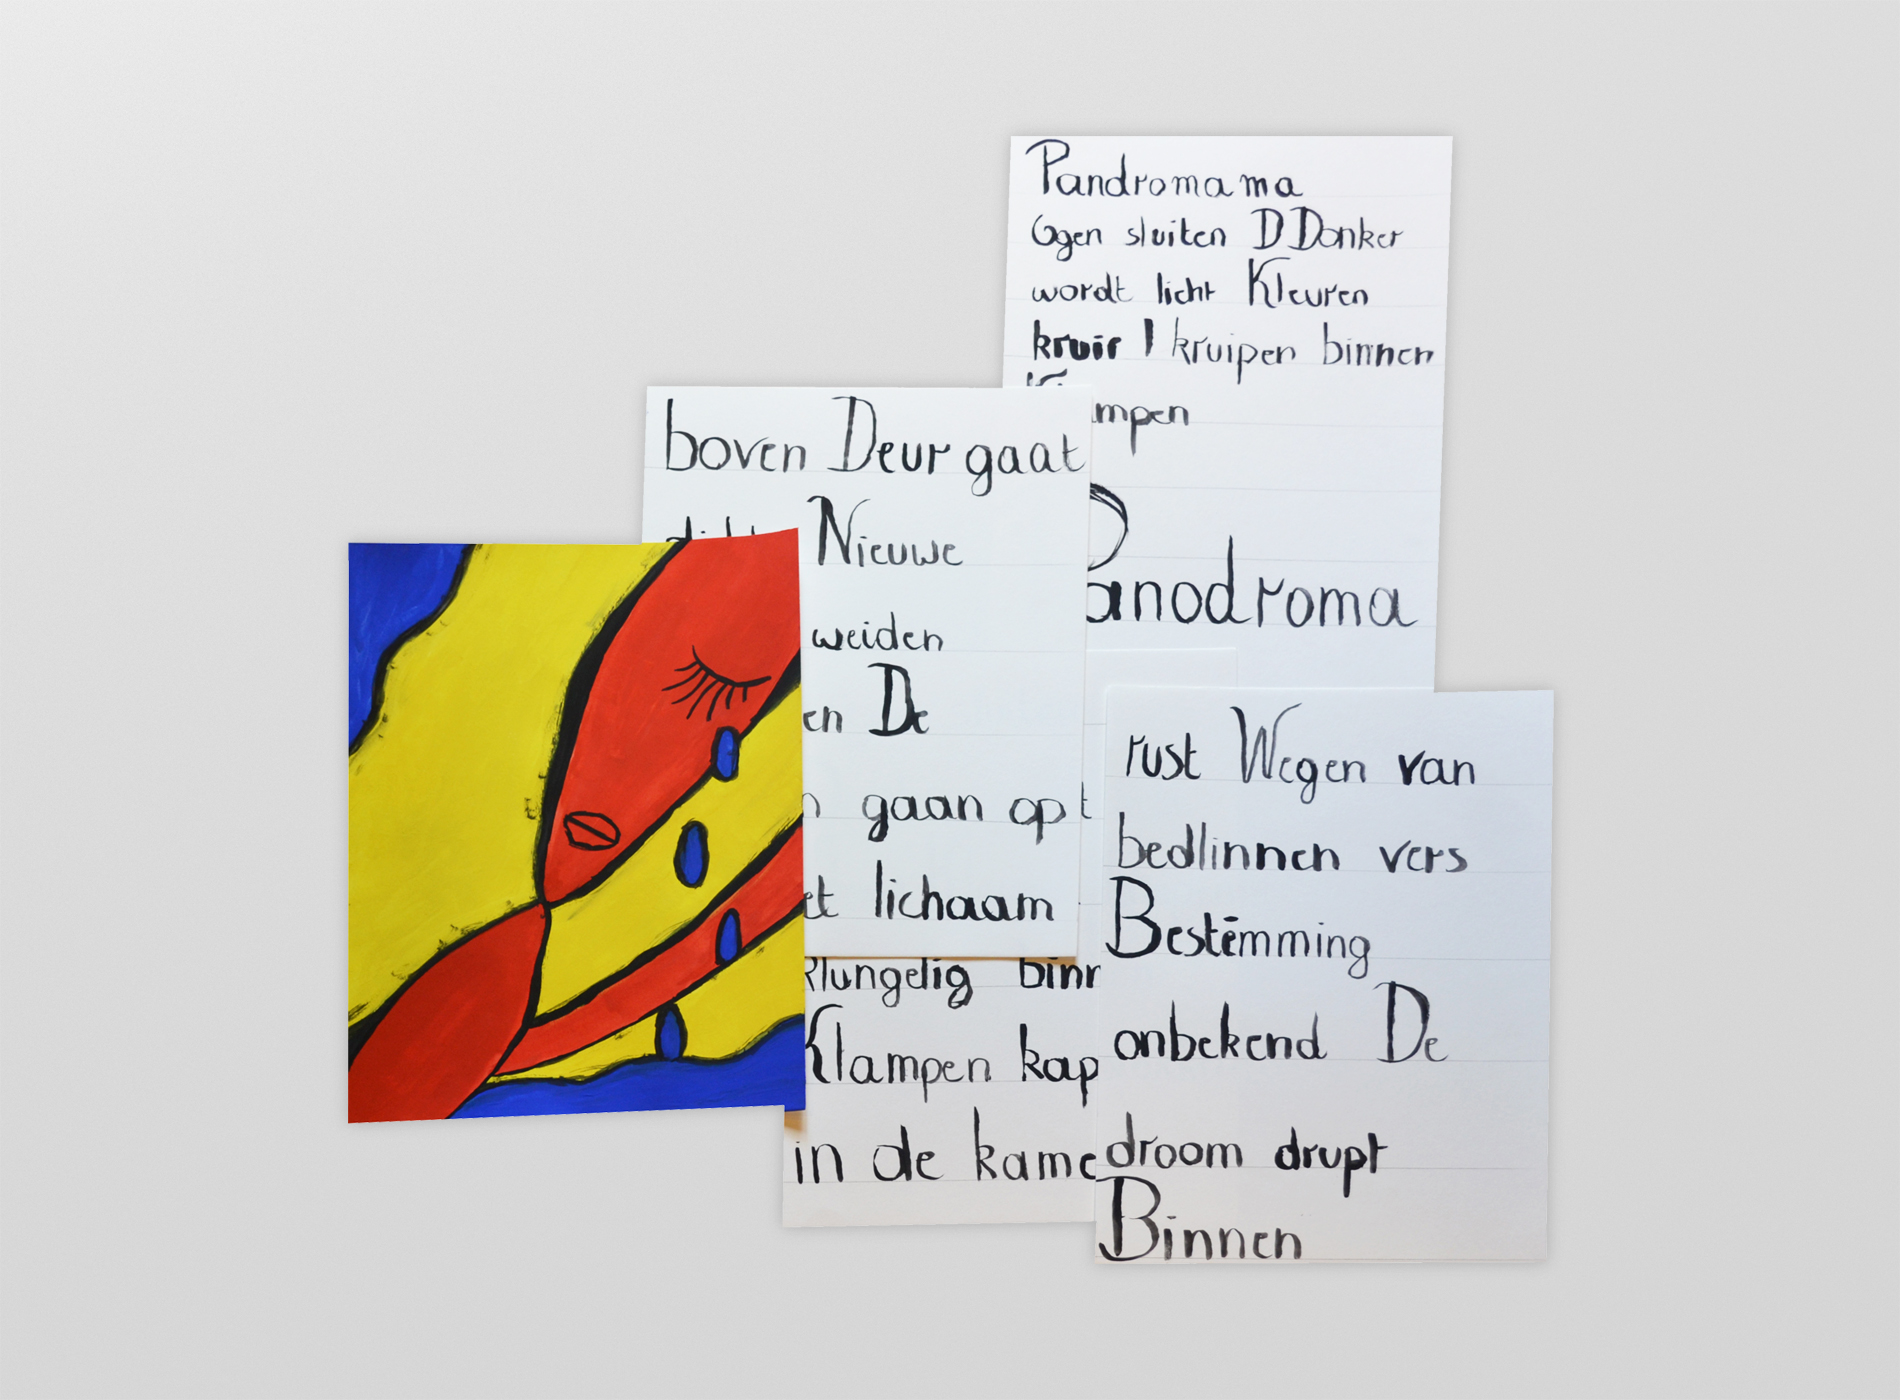 Pandromama
Ogen sluiten D Donker
wordt licht Kleuren
kruip kruipen binnen
mpen
Panodroma
boven Deur gaat
Nieuwe
weiden
en De
gaan op t
et lichaam
klungelig binn
Klampen kap
in de kame
rust Wegen van
bedlinnen vers
Bestemming
onbekend De
droom drupt
Binnen